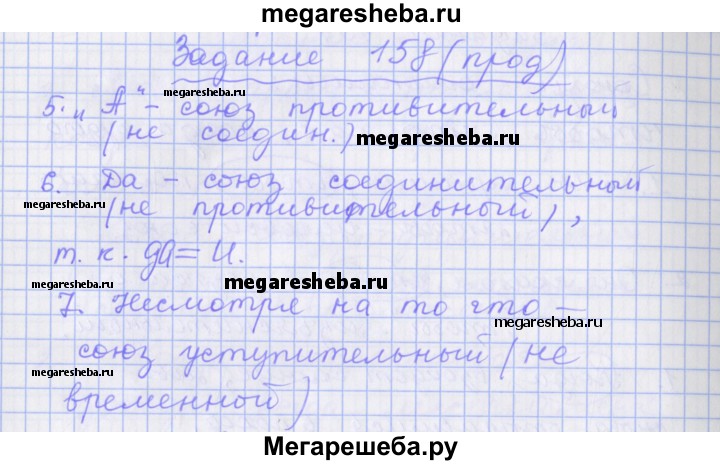 megaresheba.ru
Задание 158 (прод)
megaresheba.ru
5. "А" - союз противительный
(не соедин.)
megaresheba.ru
6. Да - союз соединительный
megaresheba.ru
(не противительный),
т. к. да = И.
megaresheba.ru
7. Несмотря на то что -
megaresheba.ru
союз уступительный (не
megaresheba.ru
временной)
Мегарешеба.ру